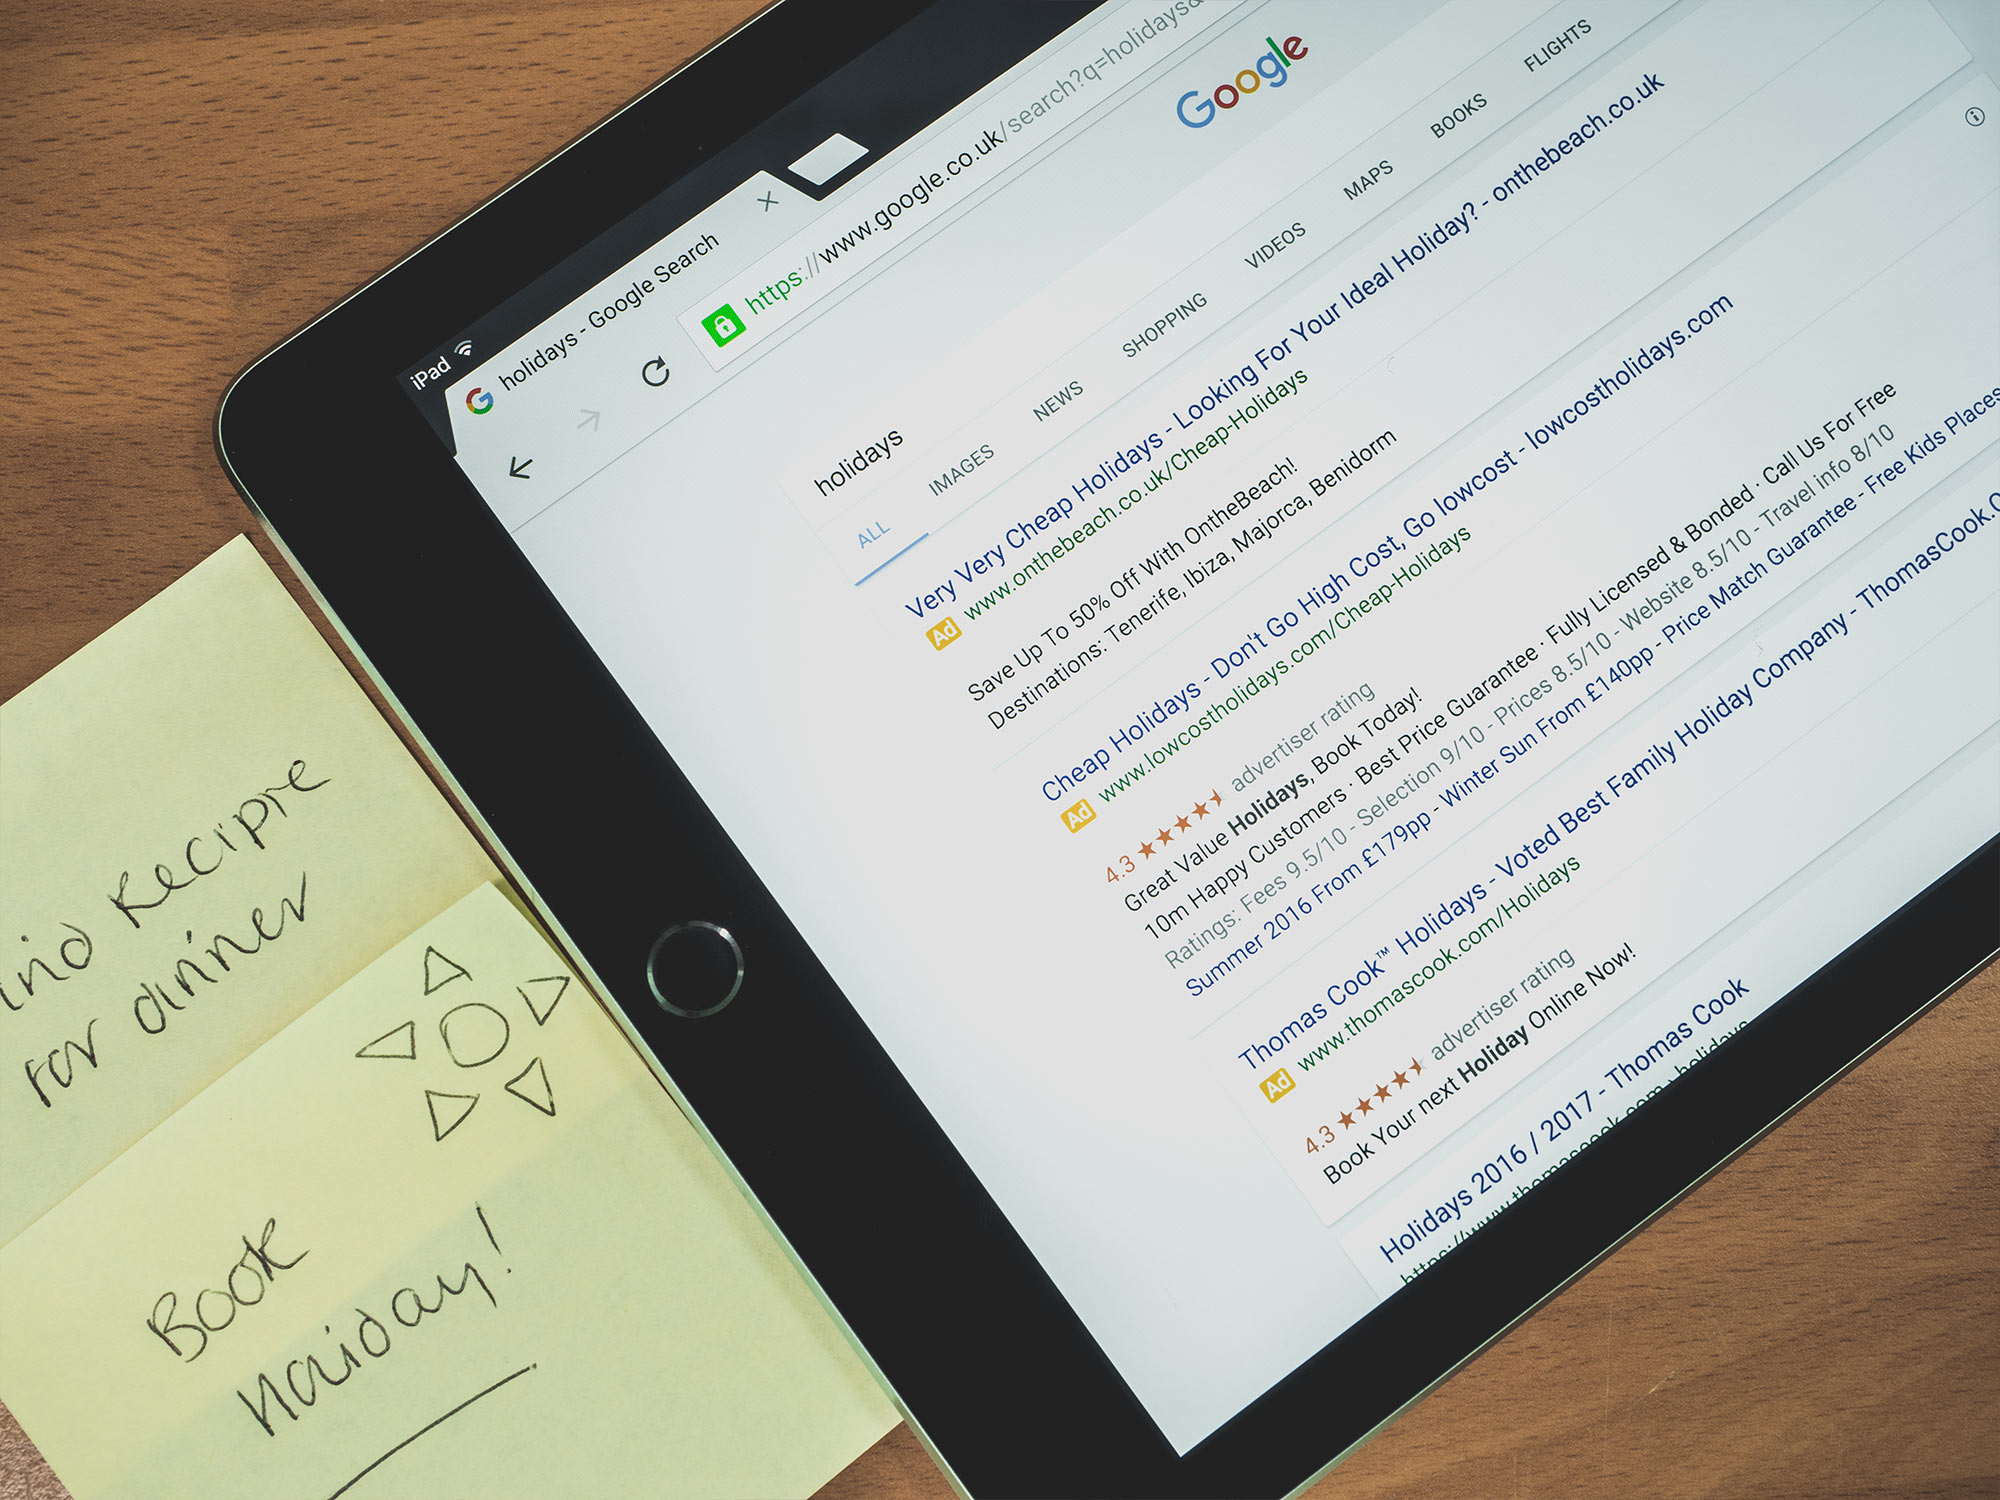 iPad
holidays - Google Search
https://www.google.co.uk/search?q=holidays&
Google
holidays
ALL IMAGES NEWS SHOPPING VIDEOS MAPS BOOKS FLIGHTS
Very Very Cheap Holidays - Looking For Your Ideal Holiday? - onthebeach.co.uk
Ad www.onthebeach.co.uk/Cheap-Holidays
Save Up To 50% Off With OntheBeach!
Destinations: Tenerife, Ibiza, Majorca, Benidorm
Cheap Holidays - Don't Go High Cost, Go lowcost - lowcostholidays.com
Ad www.lowcostholidays.com/Cheap-Holidays
4.3 ★★★★★ advertiser rating
Great Value Holidays, Book Today!
10m Happy Customers · Best Price Guarantee · Fully Licensed & Bonded · Call Us For Free
Ratings: Fees 9.5/10 - Selection 9/10 - Prices 8.5/10 - Website 8.5/10 - Travel info 8/10
Summer 2016 From £179pp - Winter Sun From £140pp - Price Match Guarantee - Free Kids Places
Thomas Cook™ Holidays - Voted Best Family Holiday Company - ThomasCook.
Ad www.thomascook.com/Holidays
4.3 ★★★★★ advertiser rating
Book Your next Holiday Online Now!
Holidays 2016 / 2017 - Thomas Cook
https://www.thomascook.com › holidays
ind recipie
for dinner
Book
holiday!